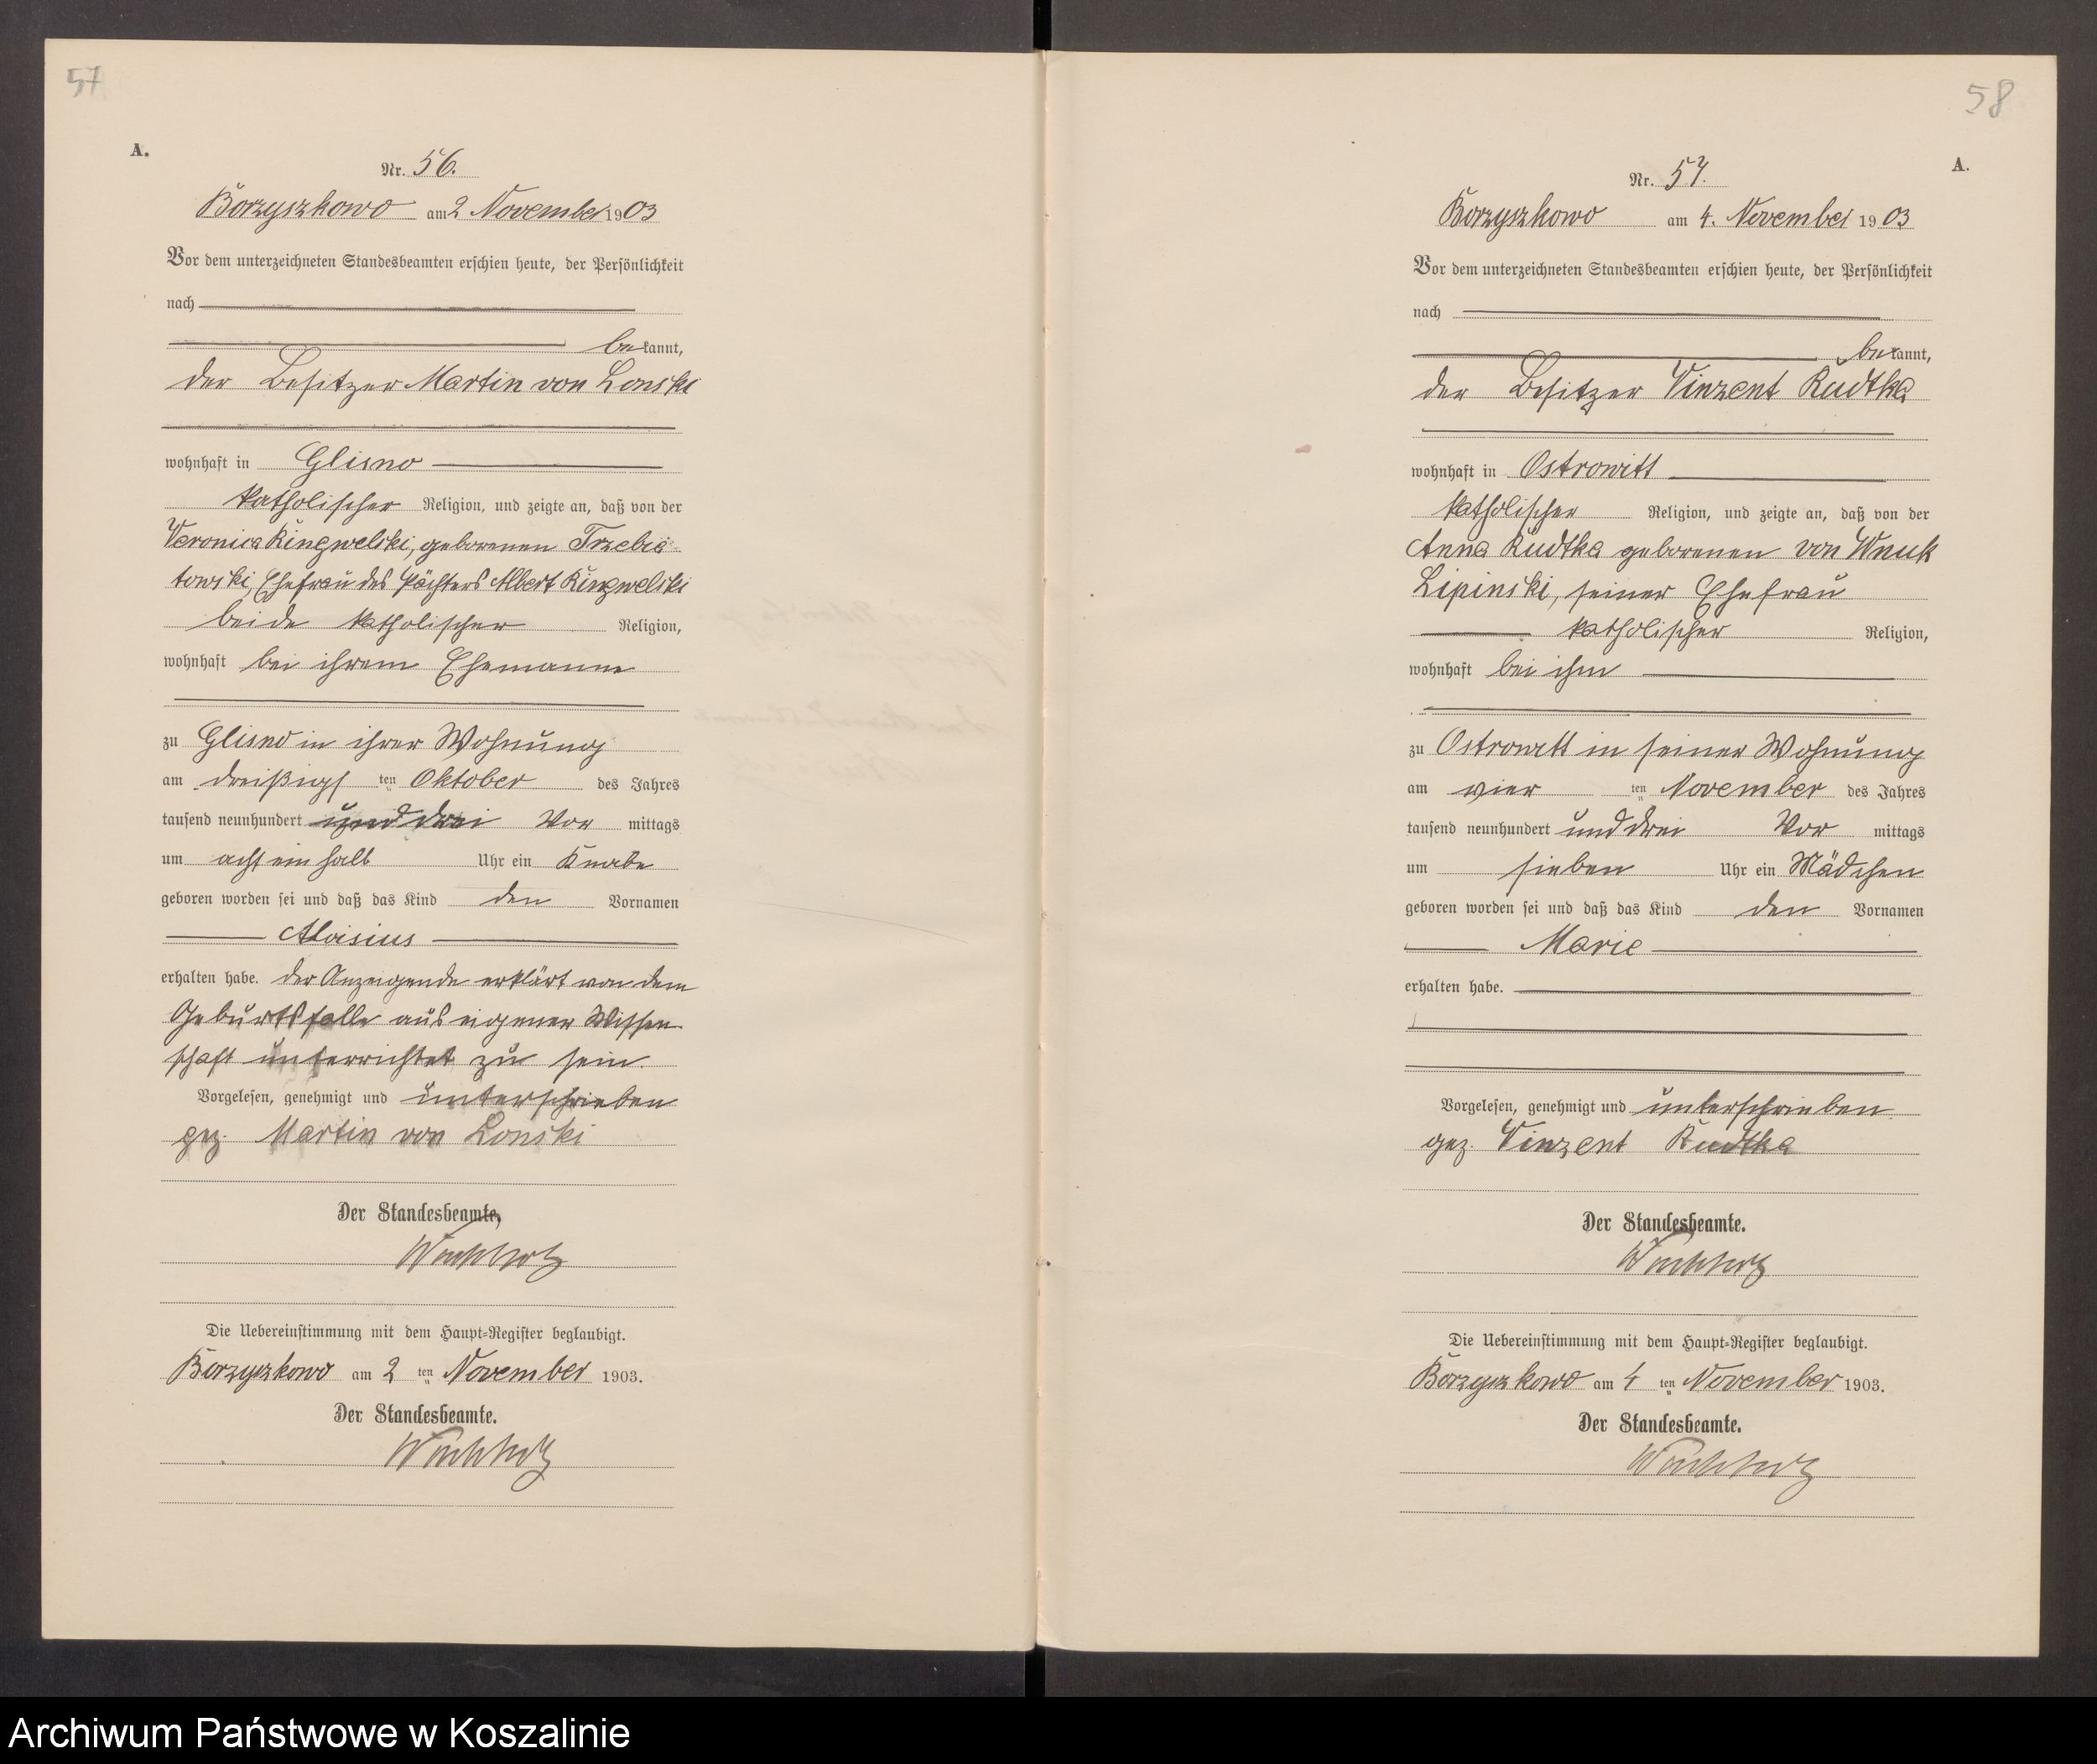 57
A.
Nr. 56.
Borzyszkowo am 2 November 1903
Vor dem unterzeichneten Standesbeamten erschien heute, der Persönlichkeit
nach
bekannt,
der Besitzer Martin von Lonski
wohnhaft in Glisno
katholischer Religion, und zeigte an, daß von der
Veronica Kingwelski, geborenen Trzebia-
towski, Ehefrau des Pächters Albert Kingwelski
beide katholischer Religion,
wohnhaft bei ihrem Ehemanne
zu Glisno in ihrer Wohnung
am dreißigst ten Oktober des Jahres
tausend neunhundert und drei Vor mittags
um acht ein halb Uhr ein Knabe
geboren worden sei und daß das Kind den Vornamen
Aloisius
erhalten habe. Der Anzeigende erklärt von dem
Geburtsfalle aus eigener Wissen-
schaft unterrichtet zu sein.
Vorgelesen, genehmigt und unterschrieben
gez. Martin von Lonski
Der Standesbeamte,
Die Uebereinstimmung mit dem Haupt-Register beglaubigt.
Borzyszkowo am 2 ten November 1903.
Der Standesbeamte.
58
A.
Nr. 57.
Borzyszkowo am 4. November 1903
Vor dem unterzeichneten Standesbeamten erschien heute, der Persönlichkeit
nach
bekannt,
der Besitzer Vinzent Rudtka
wohnhaft in Ostrowitt
katholischer Religion, und zeigte an, daß von der
Anna Rudtka geborenen von Wnuk
Lipinski, seiner Ehefrau
katholischer Religion,
wohnhaft bei ihm
zu Ostrowitt in seiner Wohnung
am vier ten November des Jahres
tausend neunhundert und drei Vor mittags
um sieben Uhr ein Mädchen
geboren worden sei und daß das Kind den Vornamen
Marie
erhalten habe.
Vorgelesen, genehmigt und unterschrieben
gez. Vinzent Rudtka
Der Standesbeamte.
Die Uebereinstimmung mit dem Haupt-Register beglaubigt.
Borzyszkowo am 4 ten November 1903.
Der Standesbeamte.
Archiwum Państwowe w Koszalinie